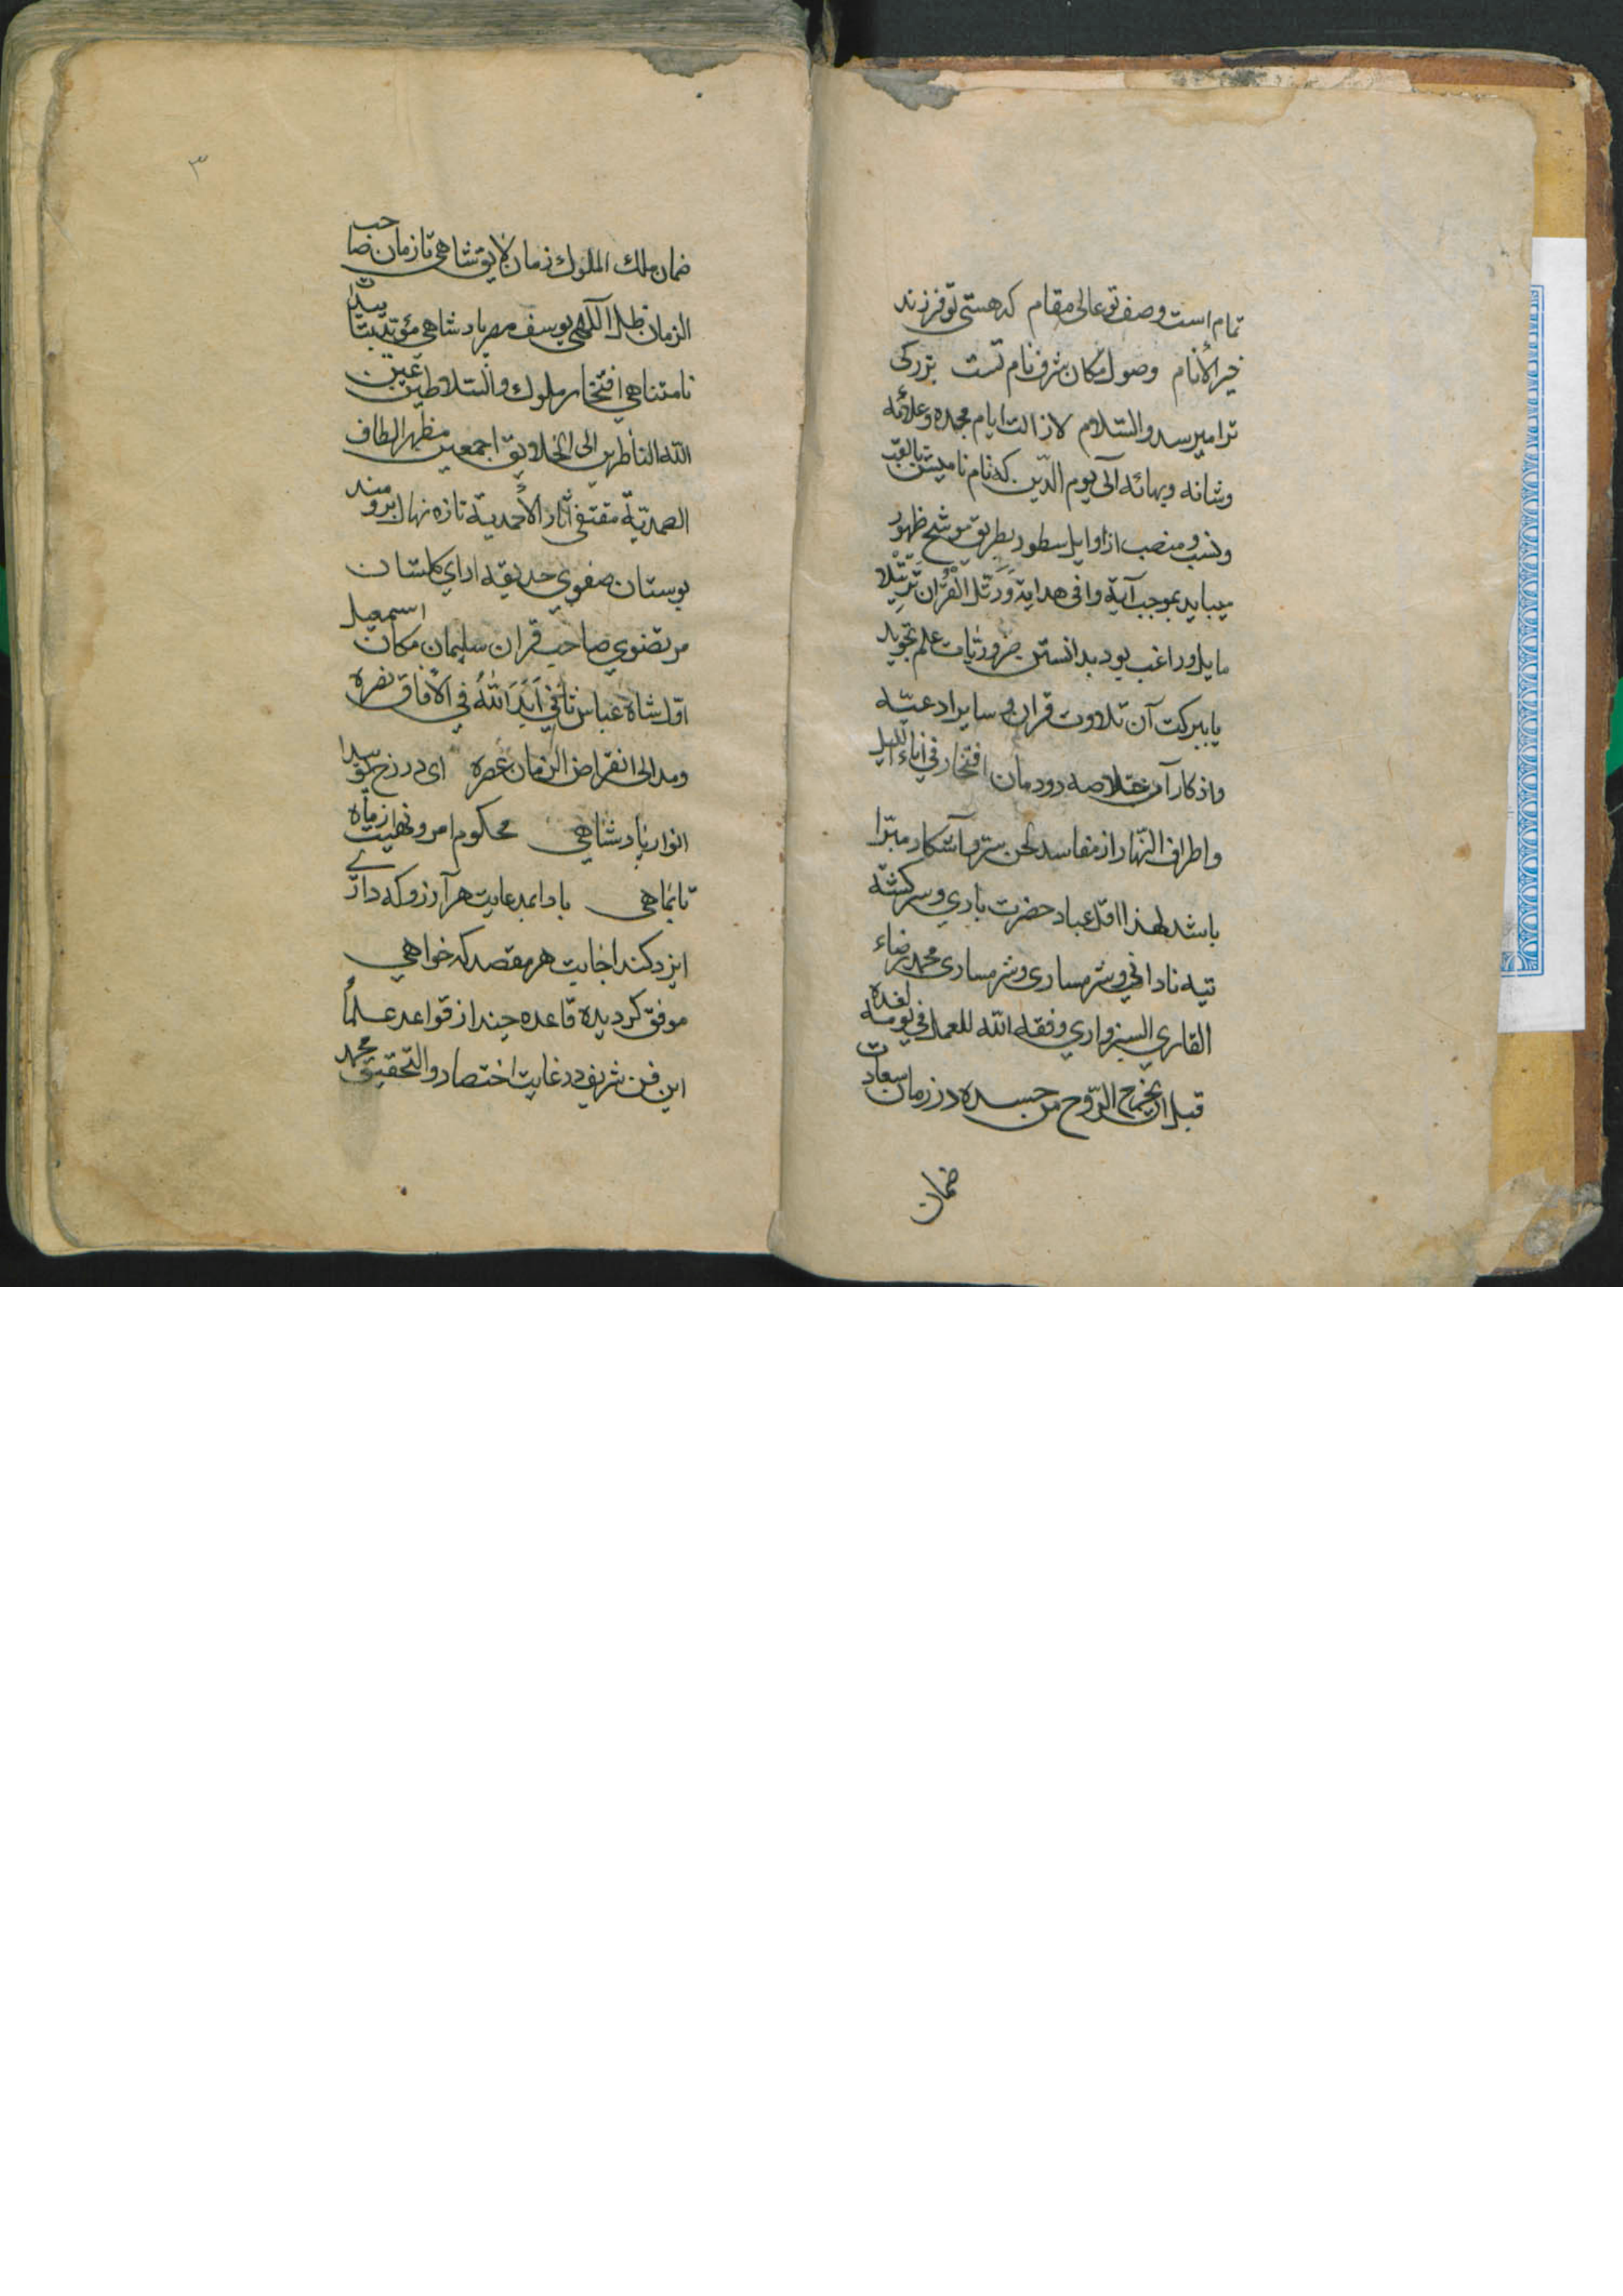 تمام است وصف تو عالی مقام که هستی تو فرزند
خیر الأنام وصول مکان شرف نام تست بزرکی
ترا میرسد والسّلام لازالت ایام مجده وعلائه
وشانه وبهائه الی یوم الدّین که نام نامیش بالقب
ونسب و منصب از اوایل سطور بطریق موشح ظهور
مییابد بموجب آیة وافی هدایة وَرَتِّلِ الْقُرْآن تَرْتیْلا
مایل وراغب بود بدانستن ضروریّات علم تجوید
یا ببرکت آن تلاوت قران و سایر ادعیّه
واذکار آن خلاصه دودمان افتخار فی اناء اللیل
واطراف النّهار از مفاسد لحن ستر وآشکار مبرّا
باشد لهذا اقلّ عباد حضرت باری وسرکشته
تیه نادانی وشرمساری وشرمساری محمد رضاء
القاری السبزواری وفقه الله للعمل فی یومه لغده
قبل ان یخرج الرّوح من جسده در زمان سعادت
ضمان
۳
ضمان ملك الملوك زمان لایق شاهی تا زمان صاحب
الزمان ظل اللهی یوسف مصر پادشاهی مؤیّد بتاییدات
نامتناهی افتخار ملوك والسّلاطین عین
الله الناظرین الی الخلایق اجمعین مظهر الطاف
الصمدیّة مقتفی آثار الأحمدیة تازه نهال برومند
بوستان صفوی حدیقه ارای کلستان
مرتضوی صاحب قران سلیمان مکان اسمعیل
اوّل شاه عباس ثانی اَیَّدَ اللهُ فی الأفاق نصره
ومد الی انقراض الزمان عصره ای در زخ تو پیدا
انوار پادشاهی محکوم امر ونهیت از ماه
تا بماهی بادا مدعایت هر آرزو که داری
ایزد کند اجابت هر مقصد که خواهی
موفق کردیده قاعده چند از قواعد علم
این فن شریف در غایت اختصار والتّحقیق محمد